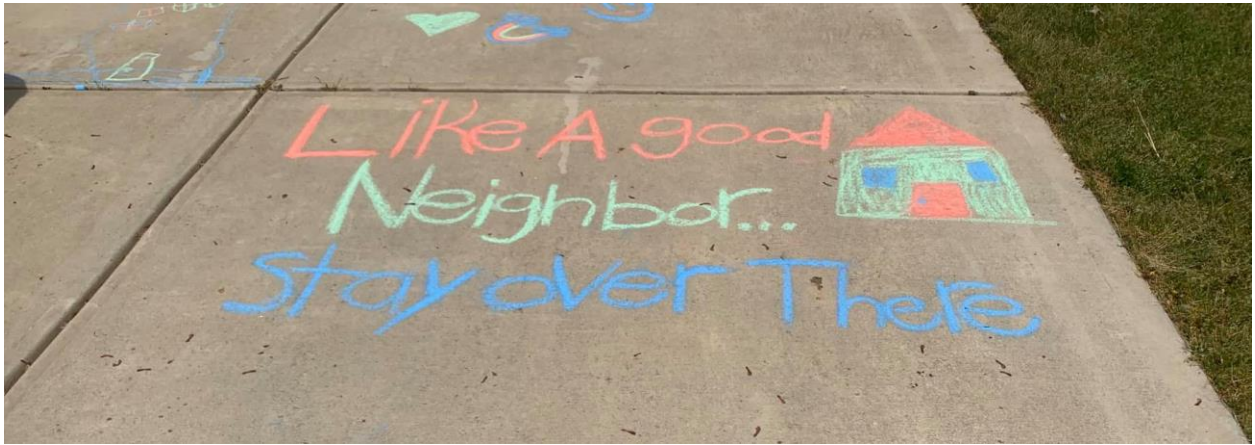 Like A good
Neighbor...
Stay over There